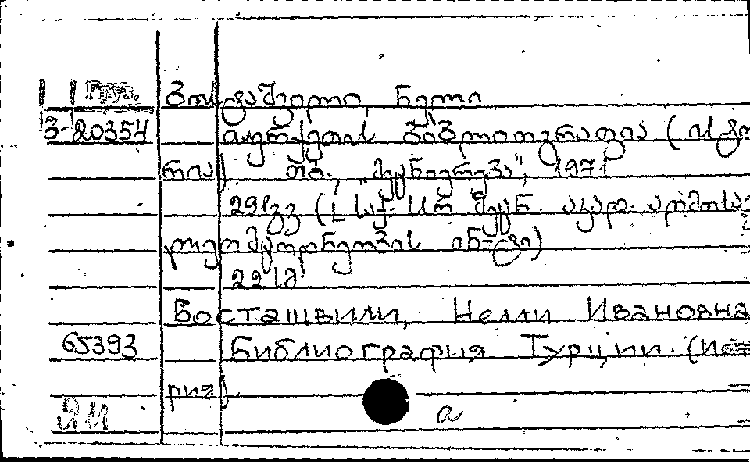 Груз. ბოსტაშვილი, ნელი
3-20354 თურქეთის ბიბლიოგრაფია (ისტო
რია) თბ., "მეცნიერება", 1971
291გვ (საქ. სსრ მეცნ. აკად. აღმოსავ
ლეთმცოდნეობის ინ-ტი)
Босташвили, Нелли Ивановна
65393 Библиография Турции. (Исто
рия)
а